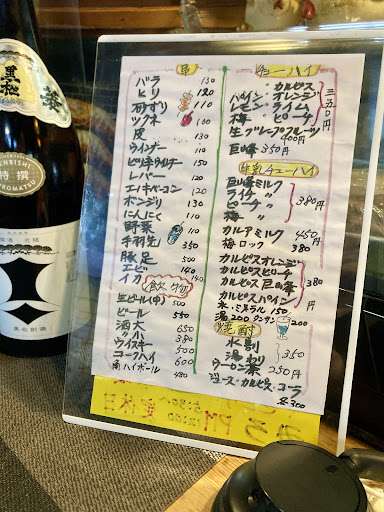 串
バラ 130
とり 120
砂ずり 110
ツクネ 100
皮 130
ウインナー 110
ピリ辛ウインナー 150
レバー 120
エノキベーコン 120
ボンジリ 130
にんにく 110
野菜 110
手羽先 350
豚足 500
エビ 140
イカ 140
飲物
生ビール(中) 500
ビール 550
酒大 650
〃小 380
ウイスキー 500
コークハイ 600
角ハイボール 480
チューハイ
カルピス
パイン・オレンジ
レモン・ライム
梅 ピーチ
三五〇円
生グレープフルーツ
400円
巨峰 350円
牛乳チューハイ
巨峰ミルク
ライチ 〃
ピーチ 〃
梅 〃
380円
カルアミルク 450円
梅ロック 380円
カルピスオレンジ
カルピスピーチ
カルピス巨峰
カルピスパイン
380円
氷・ミネラル 150
湯200 タンサン 200
焼酎
水割
湯わり 350
ウーロン茶 250円
ジュース・カルピス・コーラ
各300
黒松
特撰
定休日